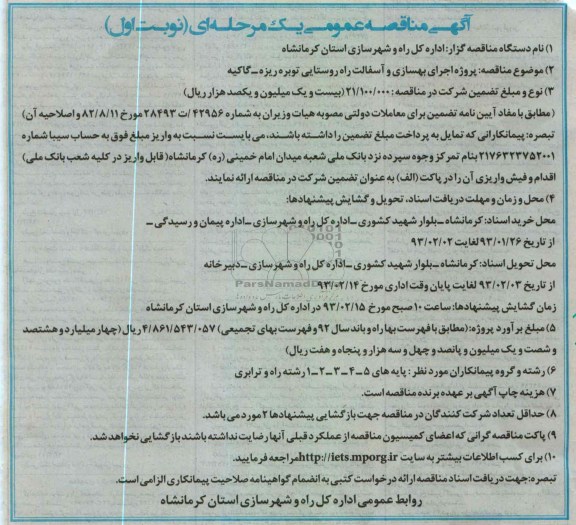 آگهی مناقصه عمومی یک مرحله ای (نوبت اول)
۱) نام دستگاه مناقصه گزار: اداره کل راه و شهرسازی استان کرمانشاه
۲) موضوع مناقصه: پروژه اجرای بهسازی و آسفالت راه روستایی توبره ریزه ــ گاکیه
۳) نوع و مبلغ تضمین شرکت در مناقصه: ۲۱/۱۰۰/۰۰۰ (بیست و یک میلیون و یکصد هزار ریال)
(مطابق با مفاد آیین نامه تضمین برای معاملات دولتی مصوبه هیات وزیران به شماره ۴۲۹۵۶ /ت ۲۸۴۹۳ مورخ ۸۲/۸/۱۱ و اصلاحیه آن)
تبصره: پیمانکارانی که تمایل به پرداخت مبلغ تضمین را داشته باشند، می بایست نسبت به واریز مبلغ فوق به حساب سیبا شماره
۲۱۷۶۳۲۳۷۵۲۰۰۱ بنام تمرکز وجوه سپرده نزد بانک ملی شعبه میدان امام خمینی (ره) کرمانشاه (قابل واریز در کلیه شعب بانک ملی)
اقدام و فیش واریزی آن را در پاکت (الف) به عنوان تضمین شرکت در مناقصه ارائه نمایند.
۴) محل و زمان و مهلت دریافت اسناد، تحویل و گشایش پیشنهادها:
محل خرید اسناد: کرمانشاه ــ بلوار شهید کشوری ــ اداره کل راه و شهرسازی ــ اداره پیمان و رسیدگی ــ
از تاریخ ۹۳/۰۱/۲۶ لغایت ۹۳/۰۲/۰۲
محل تحویل اسناد: کرمانشاه ــ بلوار شهید کشوری ــ اداره کل راه و شهرسازی ــ دبیرخانه
از تاریخ ۹۳/۰۲/۰۳ لغایت پایان وقت اداری مورخ ۹۳/۰۲/۱۴
زمان گشایش پیشنهادها: ساعت ۱۰ صبح مورخ ۹۳/۰۲/۱۵ در اداره کل راه و شهرسازی استان کرمانشاه
۵) مبلغ برآورد پروژه: (مطابق با فهرست بها راه و باند سال ۹۲ و فهرست بهای تجمیعی) ۴/۸۶۱/۵۴۳/۰۵۷ ریال (چهار میلیارد و هشتصد
و شصت و یک میلیون و پانصد و چهل و سه هزار و پنجاه و هفت ریال)
۶) رشته و گروه پیمانکاران مورد نظر: پایه های ۵ــ۴ــ۳ــ۲ــ۱ رشته راه و ترابری
۷) هزینه چاپ آگهی بر عهده برنده مناقصه است.
۸) حداقل تعداد شرکت کنندگان در مناقصه جهت بازگشایی پیشنهادها ۲ مورد می باشد.
۹) پاکت مناقصه گرانی که اعضای کمیسیون مناقصه از عملکرد قبلی آنها رضایت نداشته باشند بازگشایی نخواهد شد.
۱۰) برای کسب اطلاعات بیشتر به سایت http://iets.mporg.ir مراجعه فرمایید.
تبصره: جهت دریافت اسناد مناقصه ارائه درخواست کتبی به انضمام گواهینامه صلاحیت پیمانکاری الزامی است.
روابط عمومی اداره کل راه و شهرسازی استان کرمانشاه